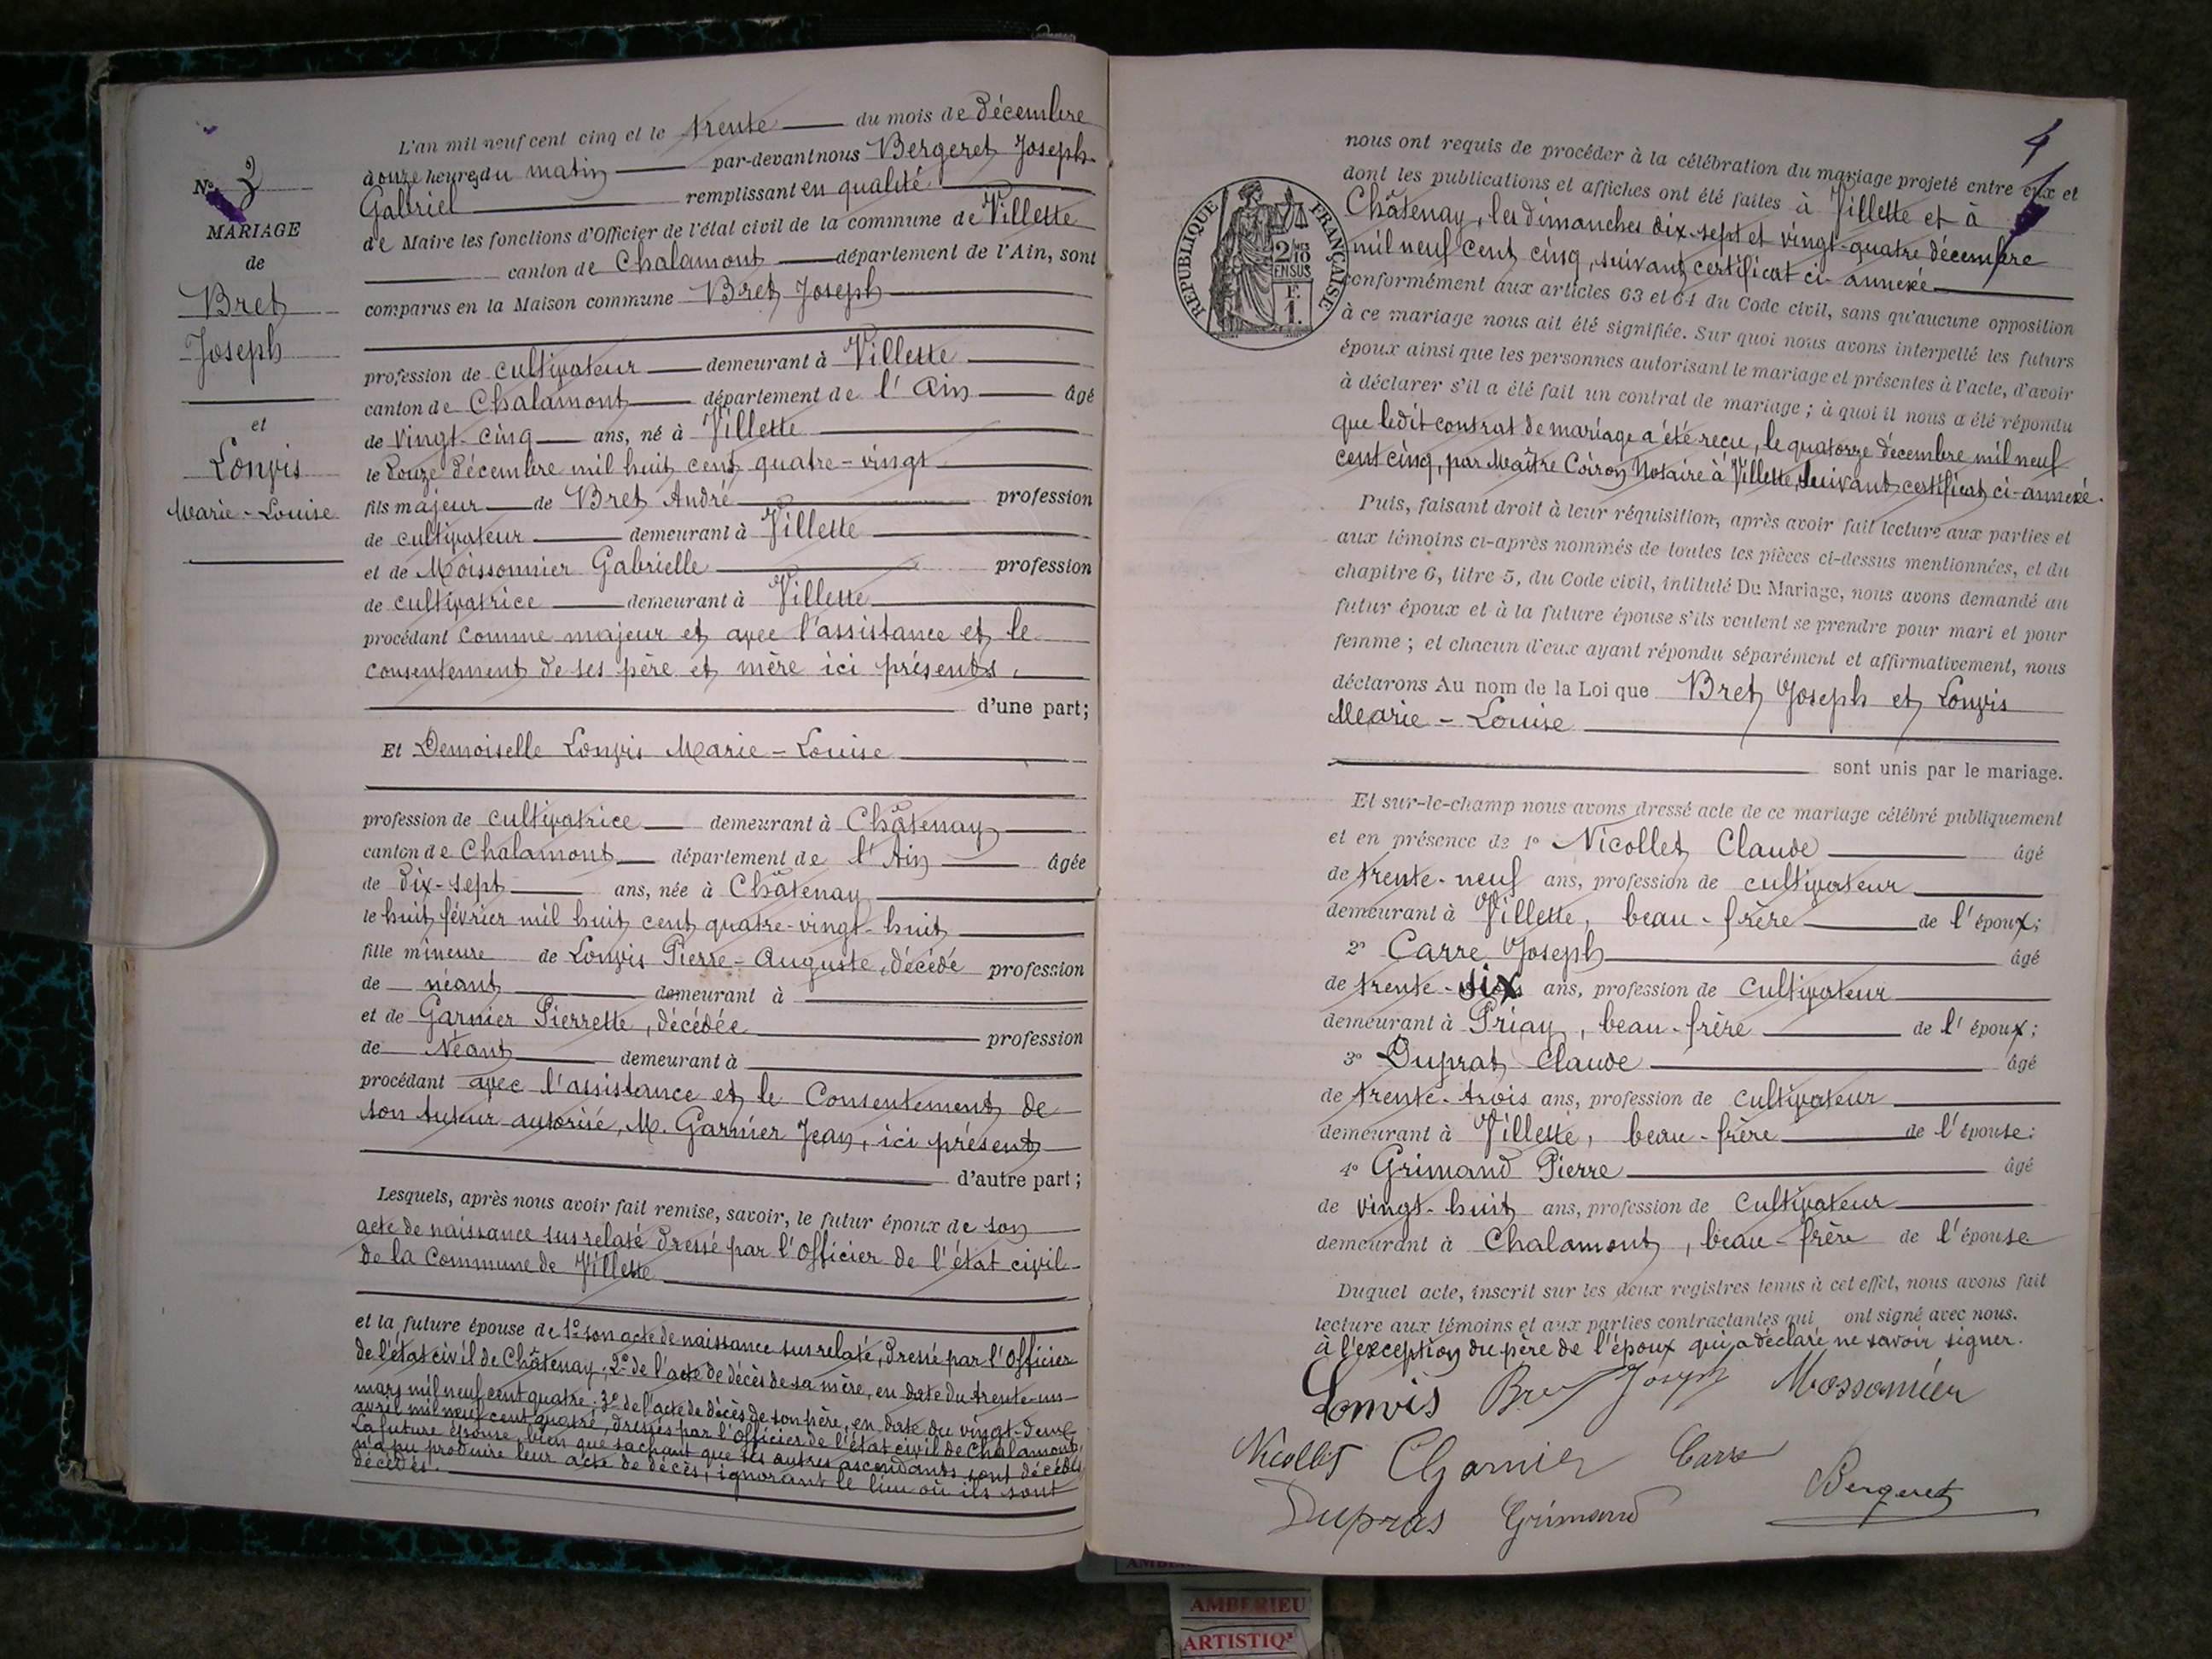 N° 3
MARIAGE
de
Bret
Joseph
et
Lonvis
Marie-Louise
L'an mil neuf cent cinq et le trente du mois de décembre
à onze heures du matin par-devant nous Bergeret Joseph-
Gabriel remplissant en qualité
de Maire les fonctions d'Officier de l'état civil de la commune de Villette
canton de Chalamont département de l'Ain, sont
comparus en la Maison commune Bret Joseph
profession de cultivateur demeurant à Villette
canton de Chalamont département de l'Ain âgé
de vingt-cinq ans, né à Villette
le douze décembre mil huit cent quatre-vingt
fils majeur de Bret André profession
de cultivateur demeurant à Villette
et de Moissonnier Gabrielle profession
de cultivatrice demeurant à Villette
procédant comme majeur et avec l'assistance et le
consentement de ses père et mère ici présents.
d'une part;
Et Demoiselle Lonvis Marie-Louise
profession de cultivatrice demeurant à Châtenay
canton de Chalamont département de l'Ain âgée
de dix-sept ans, née à Châtenay
le huit février mil huit cent quatre-vingt-huit
fille mineure de Lonvis Pierre-Auguste, décédé profession
de néant demeurant à
et de Garnier Pierrette, décédée profession
de Néant demeurant à
procédant avec l'assistance et le Consentement de
son tuteur autorisé, M. Garnier Jean, ici présent
d'autre part;
Lesquels, après nous avoir fait remise, savoir, le futur époux de son
acte de naissance susrelaté dressé par l'Officier de l'état civil
de la Commune de Villette
et la future épouse de 1° son acte de naissance susrelaté, dressé par l'Officier
de l'état civil de Châtenay; 2° de l'acte de décès de sa mère, en date du trente-un
mars mil neuf cent quatre; 3° de l'acte de décès de son père, en date du vingt-deux
avril mil neuf cent quatre, dressés par l'Officier de l'état civil de Chalamont.
La future épouse, bien que sachant que ses autres ascendants sont décédés,
n'a pu produire leur acte de décès, ignorant le lieu où ils sont
décédés.
4
REPUBLIQUE FRANÇAISE
2/10 EN SUS
F. 1.
nous ont requis de procéder à la célébration du mariage projeté entre eux et
dont les publications et affiches ont été faites à Villette et à
Châtenay, les dimanches dix-sept et vingt-quatre décembre
mil neuf cent cinq, suivant certificat ci-annexé
conformément aux articles 63 et 64 du Code civil, sans qu'aucune opposition
à ce mariage nous ait été signifiée. Sur quoi nous avons interpellé les futurs
époux ainsi que les personnes autorisant le mariage et présentes à l'acte, d'avoir
à déclarer s'il a été fait un contrat de mariage; à quoi il nous a été répondu
que ledit contrat de mariage a été reçu, le quatorze décembre mil neuf
cent cinq, par Maître Coiron Notaire à Villette, suivant certificat ci-annexé.
Puis, faisant droit à leur réquisition, après avoir fait lecture aux parties et
aux témoins ci-après nommés de toutes les pièces ci-dessus mentionnées, et du
chapitre 6, titre 5, du Code civil, intitulé Du Mariage, nous avons demandé au
futur époux et à la future épouse s'ils veulent se prendre pour mari et pour
femme; et chacun d'eux ayant répondu séparément et affirmativement, nous
déclarons Au nom de la Loi que Bret Joseph et Lonvis
Marie-Louise
sont unis par le mariage.
Et sur-le-champ nous avons dressé acte de ce mariage célébré publiquement
et en présence de 1° Nicollet Claude âgé
de trente-neuf ans, profession de cultivateur
demeurant à Villette, beau-frère de l'époux;
2° Carre Joseph âgé
de trente-six ans, profession de Cultivateur
demeurant à Priay, beau-frère de l'époux;
3° Duprat Claude âgé
de trente-trois ans, profession de Cultivateur
demeurant à Villette, beau-frère de l'épouse:
4° Grimand Pierre âgé
de vingt-huit ans, profession de Cultivateur
demeurant à Chalamont, beau-frère de l'épouse
Duquel acte, inscrit sur les deux registres tenus à cet effet, nous avons fait
lecture aux témoins et aux parties contractantes qui ont signé avec nous.
à l'exception du père de l'époux qui a déclaré ne savoir signer.
Lonvis Bret Joseph Mossonnier
Nicollet Garnier Carre
Bergeret
Dupras Grimand
AMBERIEU
ARTISTIQ